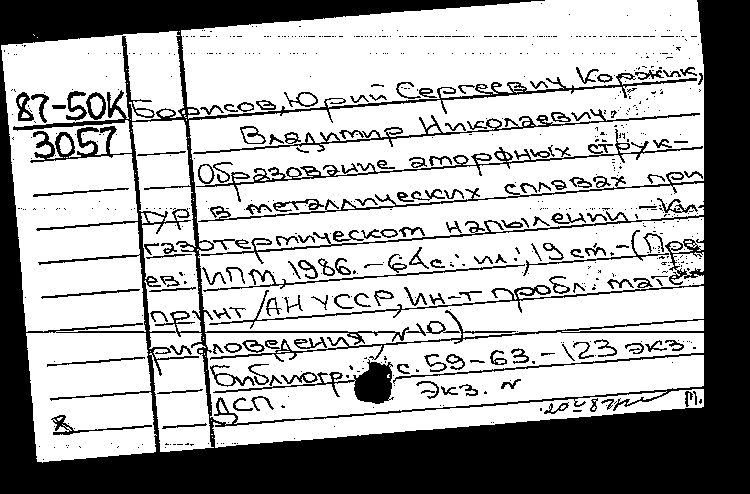 87-50К
3057
Борисов, Юрий Сергеевич, Коржик,
Владимир Николаевич.
Образование аморфных струк-
тур в металлических сплавах при
газотермическом напылении. - Ки-
ев: ИПМ, 1986. - 64 с.: ил.; 19 см. - (Пре-
принт / АН УССР, Ин-т пробл. мате-
риаловедения; N 10)
Библиогр.: с. 59-63. - 123 экз.
ДСП. Экз. N
М.